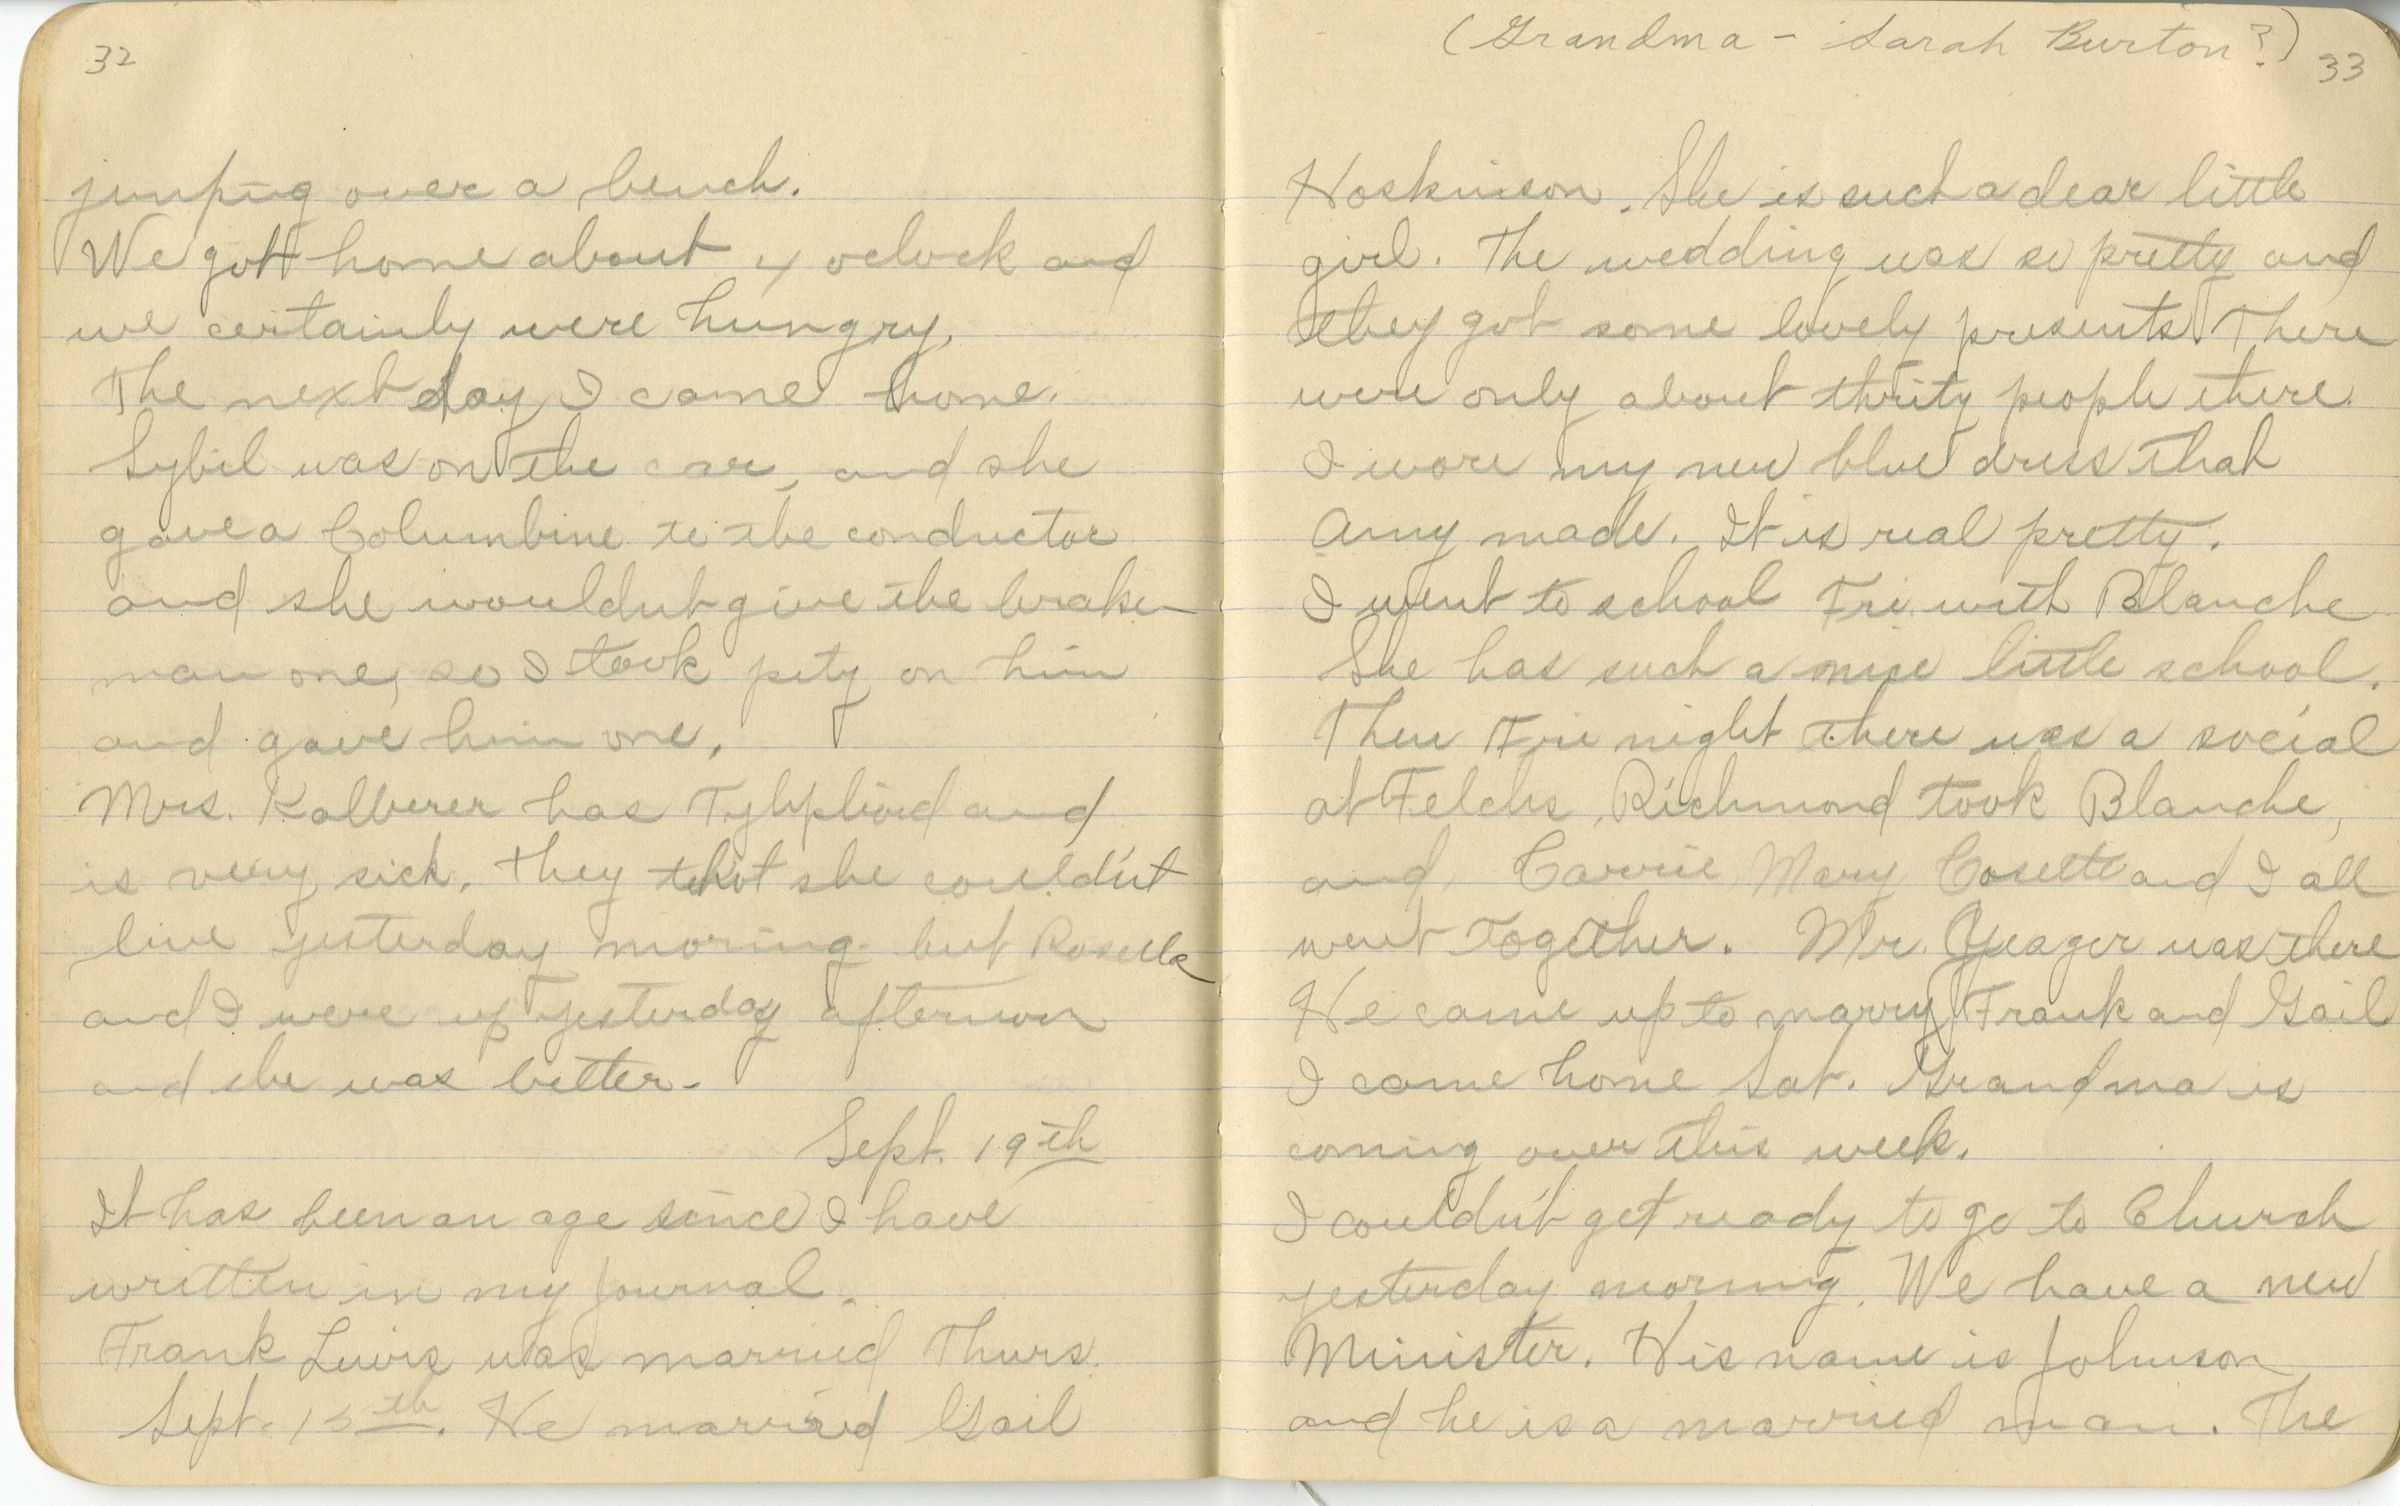 32
jumping over a bench.
We got home about 4 oclock and
we certainly were hungry.
The next day I came home.
Sybil was on the car, and she
gave a Columbine to the conductor
and she wouldnt give the brake-
man one, so I took pity on him
and gave him one.
Mrs. Kalberer has Tyhphiod and
is very sick. They thot she could'nt
live yesterday moring but Rosella
and I were up yesterday afternoon
and she was better-
Sept. 19th
It has been an age since I have
written in my journal.
Frank Lewis was married Thurs.
Sept. 15th. He married Gail
(Grandma - Sarah Burton?) 33
Hoskinson. She is such a dear little
girl. The wedding was so pretty and
they got some lovely presents There
were only about thrity people there.
I wore my new blue dress that
Amy made. It is real pretty.
I went to school Fri with Blanche
She has such a nice little school.
Then Fri night there was a social
at Felchs. Richmond took Blanche,
and Carrie, Mary, Cosette and I all
went together. Mr. Yeager was there
He came up to marry Frank and Gail
I came home Sat. Grandma is
coming over this week.
I could'nt get ready to go to Church
yesterday morning. We have a new
Minister. His name is Johnson
and he is a married man. The